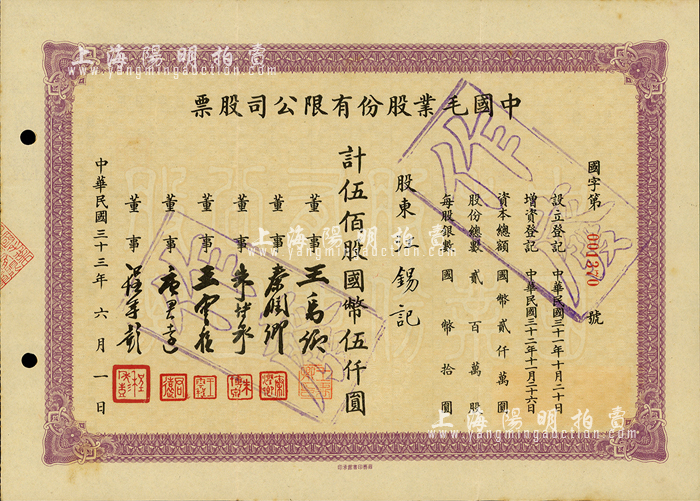 上海陽明拍賣
www.yangmingauction.com
中國毛業股份有限公司股票
國字第 001270 號
設立登記 中華民國三十一年十月二十日
增資登記 中華民國三十二年十一月二十六日
資本總額 國幣貳仟萬圓
股份總數 貳百萬股
每股銀數 國幣拾圓
股東 錫記
計伍佰股國幣伍仟圓
董事 王
董事 秦
董事 朱
董事 王
董事
董事
中華民國三十三年六月一日
作廢
作廢
上海陽明拍賣
www.yangmingauction.com
上海陽明拍賣
www.yangmingauction.com